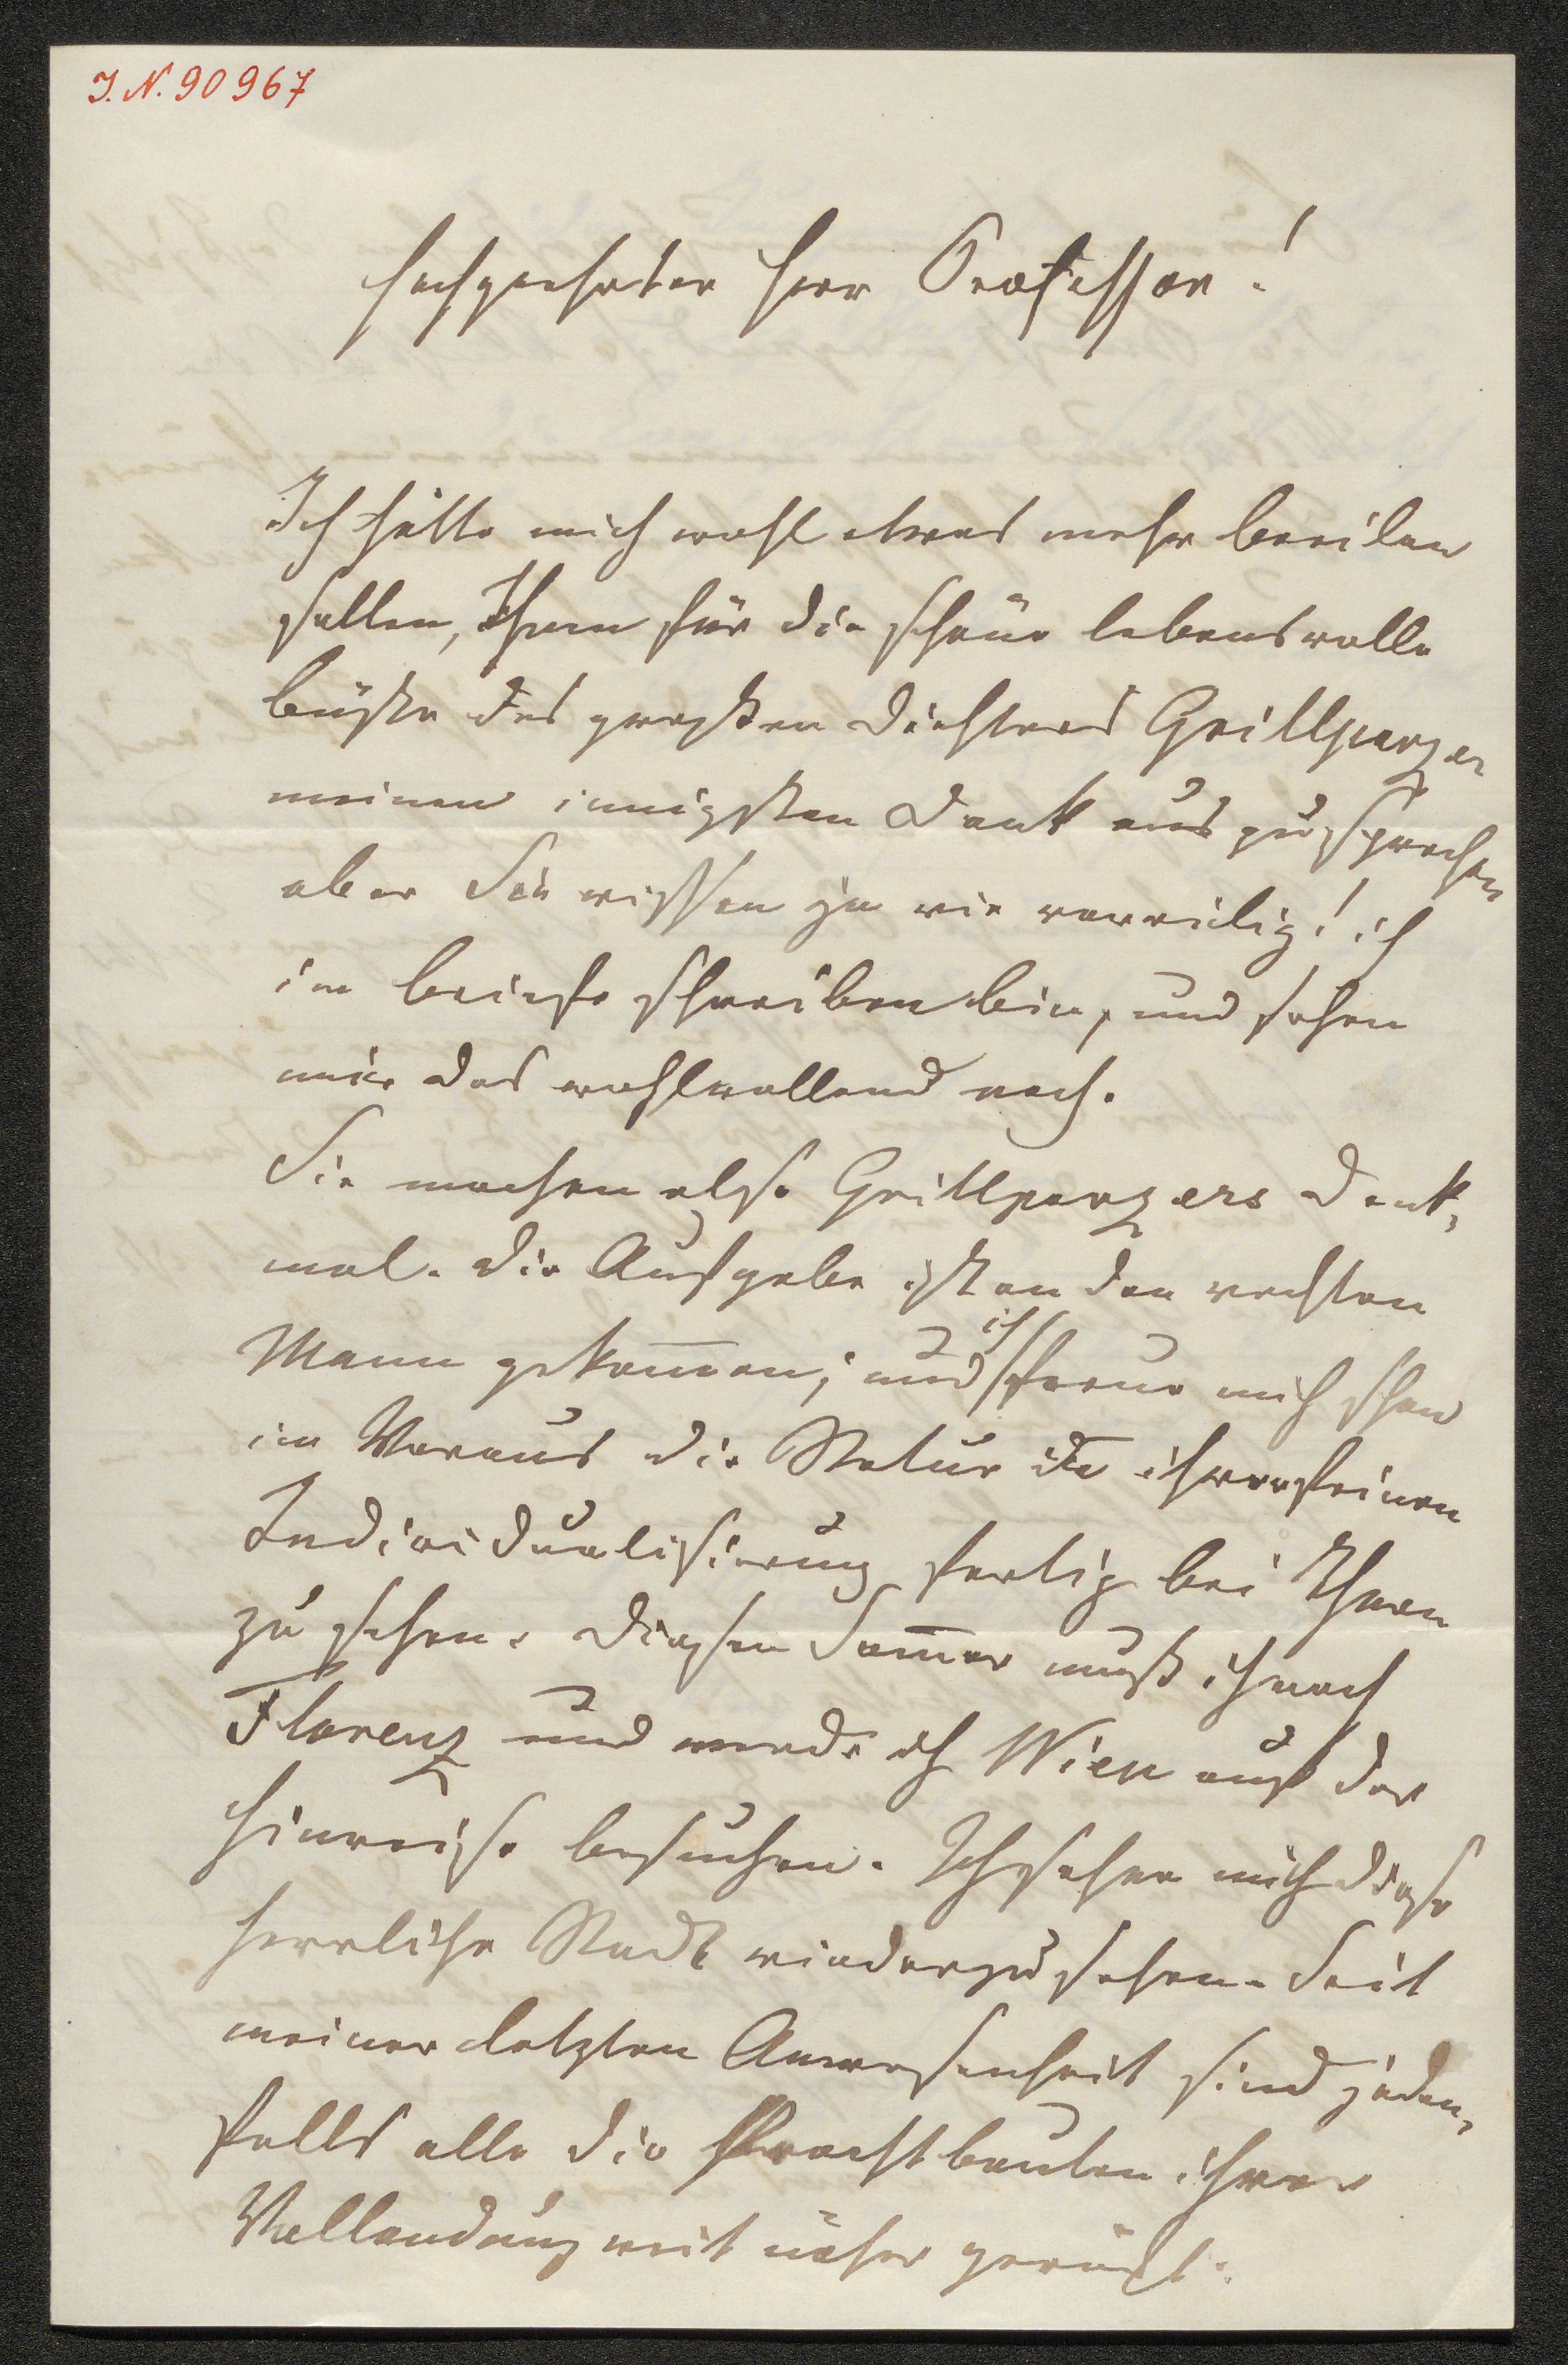 J. N. 90967
Hochgeehrter Herr Professor!
Ich hätte mich wohl etwas mehr beeilen
sollen, Ihnen für die schöne lebensvolle
Büste des großen Dichters Grillparzer
meinen innigsten Dank auszusprechen
aber Sie wissen ja wie voreilig! ich
im briefe schreiben bin, und sehen
mir das wohlwollend nach.
Sie machen also Grillparzers Denk-
mal. Die Aufgabe ist an den rechten
Mann gekom̄en; und ich freue mich schon
im Voraus die Statue in ihrer feinen
Individualisierung fertig bei Ihnen
zu sehen. Diesen Som̄er muß ich nach
Florenz und werde ich Wien auf der
Hinreise besuchen. Ich sehne mich diese
herrliche Stadt wiederzusehen. Seit
meiner letzten Anwesenheit sind jeden-
falls alle die Prachtbauten ihrer
Vollendung weit näher gerückt.